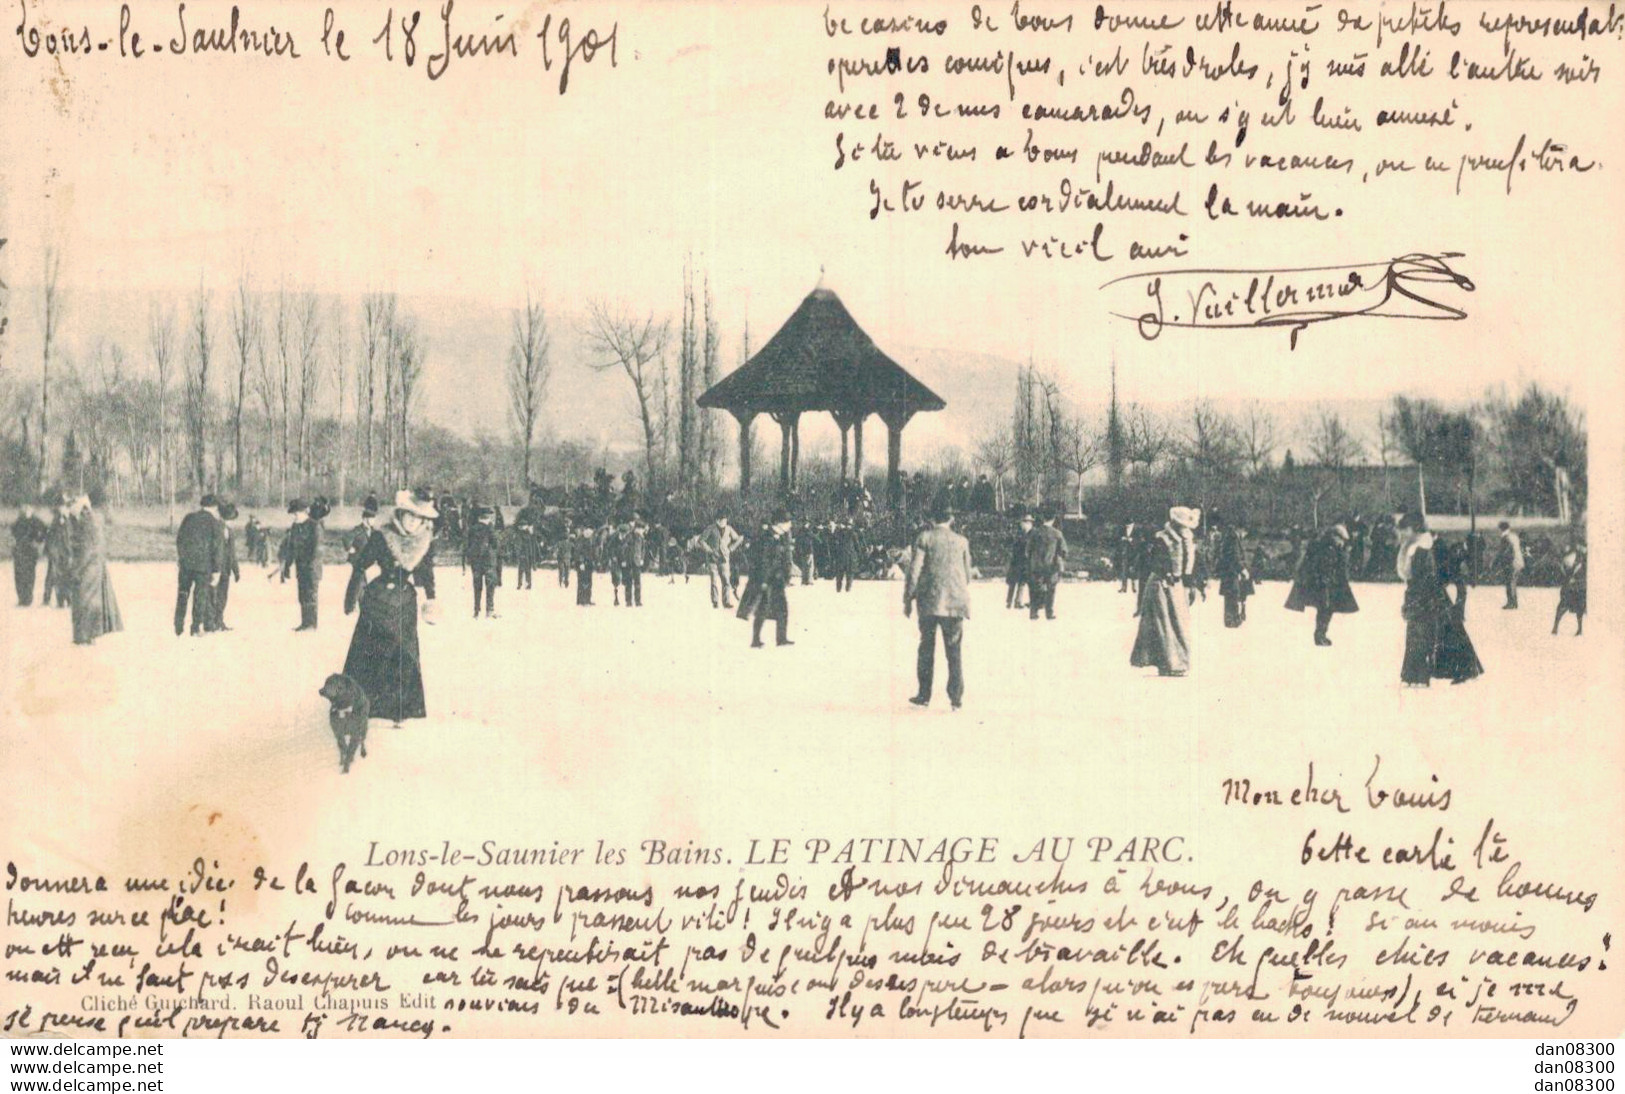 Lons-le-Saulnier le 18 Juin 1901.
Le casino de Lons donne cette année de petites représentat.
operettes comiques, c'est très droles, j'y suis allé l'autre soir
avec 2 de mes camarades, on s'y est bien amusé.
Si tu viens a Lons pendant les vacances, on en profitera.
Je te serre cordialement la main.
ton vieil ami
J. Vuillermoz
Mon cher Louis
Cette carte te
Lons-le-Saunier les Bains. LE PATINAGE AU PARC.
donnera une idée de la façon dont nous passons nos jeudis et nos dimanches à Lons, on y passe de bonnes
heures sur ce lac! comme les jours passent vite! Il n'y a plus que 28 jours et c'est le bachot! Si au moins
on est reçu, cela irait bien, on ne se repentirait pas de quelques mois de travaille. Eh quelles chics vacances!
mais il ne faut pas desesperer car tu sais que :- (belle marquise on desespere - alors qu'on espere toujours), si je me
Cliché Guichard. Raoul Chapuis Edit
souviens du Misanthrope. Il y a longtemps que je n'ai pas eu de nouvel de Fernand
je pense qu'il prepare Nancy.
dan08300
dan08300
dan08300
www.delcampe.net
www.delcampe.net
www.delcampe.net